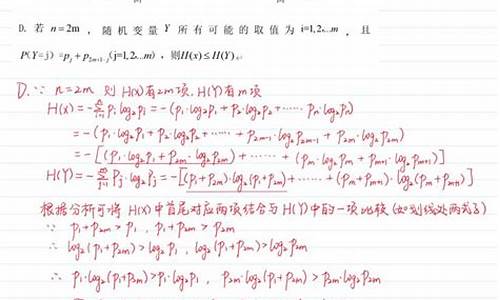 D. 若 n=2m ，随机变量 Y 所有可能的取值为 i=1,2…m ，且
P(Y=j) =p_j + p_{2m+1-j} (j=1,2…m) ，则H(x)≤H(Y).
D. ∵ n=2m 则 H(x)有2m项, H(Y)有m项
H(x)=-Σp_i log₂p_i = -(p₁·log₂p₁ + p₂·log₂p₂ + …… p_n·log₂p_n)
=-(p₁·log₂p₁ + p₂·log₂p₂ + …… + p_{2m-1}·log₂p_{2m-1} + p_{2m}·log₂p_{2m})
=-[(p₁·log₂p₁ + p_{2m}·log₂p_{2m}) + …… + (p_m·log₂p_m + p_{m+1}·log₂p_{m+1})]
H(Y)=-Σp_j·log₂p_j =-[(p₁+p_{2m})·log₂(p₁+p_{2m}) + …… + (p_m+p_{m+1})·log₂(p_m+p_{m+1})]
根据分析可将 H(x)中首尾对应两项结合与H(Y)中的一项比较(如划线处两式)
∵ p₁+p_{2m}>p₁ , p₁+p_{2m}>p_{2m}
∴ log₂(p₁+p_{2m})>log₂p₁ , log₂(p₁+p_{2m})>log₂p_{2m}
∴ p₁·log₂(p₁+p_{2m})>p₁·log₂p₁ , p_{2m}·log₂(p₁+p_{2m})>p_{2m}·log₂p_{2m}